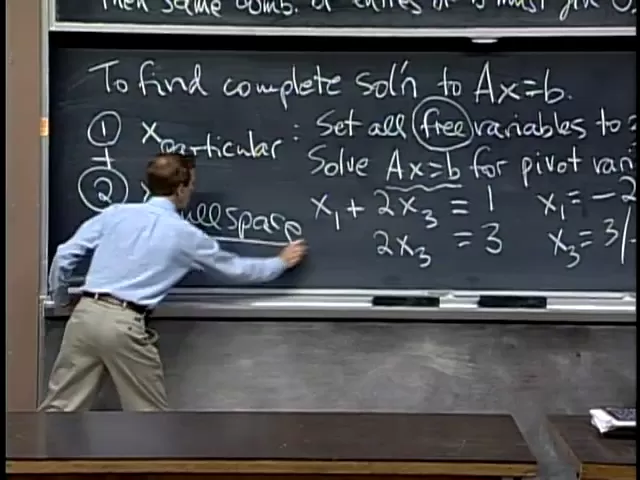 Then same comb. of entries of b must give 0
To find complete sol'n to Ax=b.
① x particular : Set all free variables to
Solve Ax=b for pivot vari
+
② x nullspace
x₁ + 2x₃ = 1 x₁ = -2
2x₃ = 3 x₃ = 3/